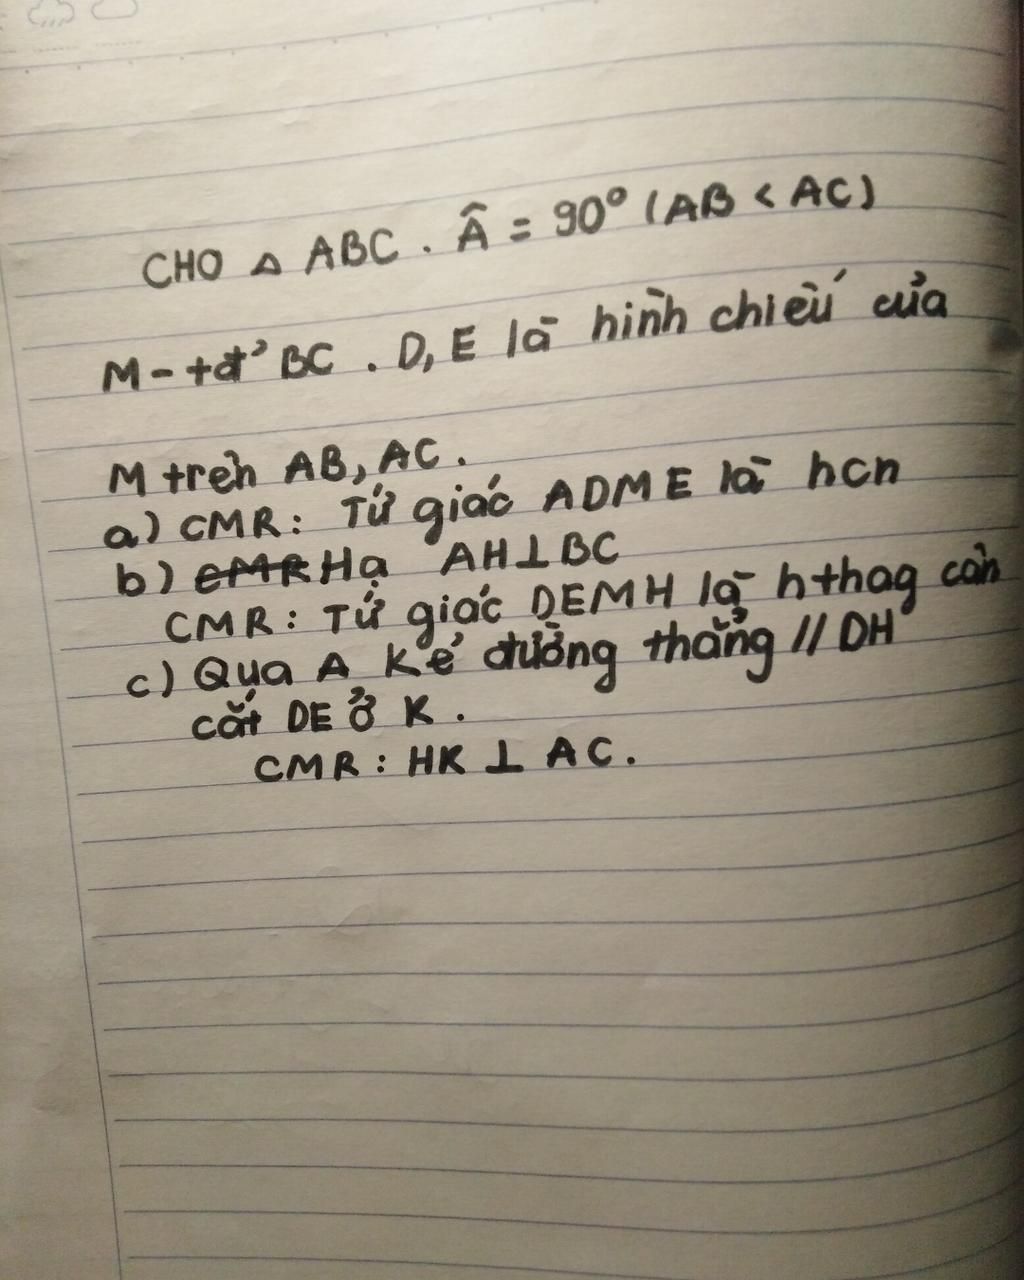 CHO △ ABC . Â = 90° (AB < AC)
M - tđ' BC . D, E là hình chiếu của
M trên AB, AC .
a) CMR : Tứ giác ADME là hcn
b) CMR Hạ AH ⊥ BC
CMR : Tứ giác DEMH là hthag cân
c) Qua A kẻ đường thẳng // DH
cắt DE ở K .
CMR : HK ⊥ AC .